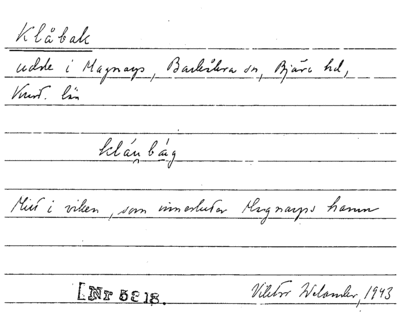 Klåbak
udde i Magnarp, Barkåkra sn, Bjäre hd,
Krist. län
klåu̯båg
Mitt i viken, som innesluter Magnarps hamn
[Nr 5218.
Viktor Welander, 1943